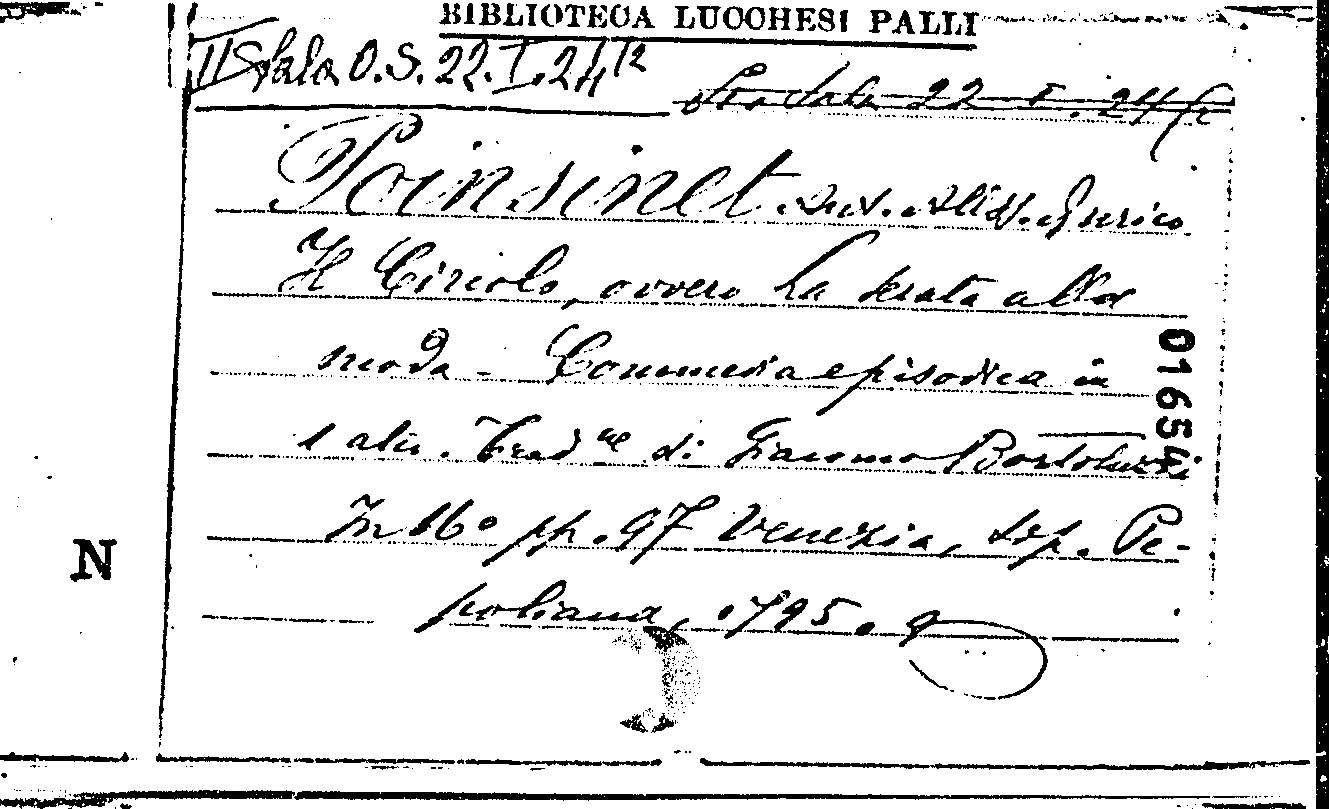 BIBLIOTECA LUCCHESI PALLI
II Sala O.S. 22.I.24/12
Sala 22 I. 24
Poinsinet Ant. Aless. Enrico
Il Circolo, ovvero La serata alla
moda - Commedia episodica in
1 atto. Trad.ne di Giacomo Bortoluzzi
In 16° pp. 97 Venezia, tip. Pe-
poliana, 1795.
01654
N